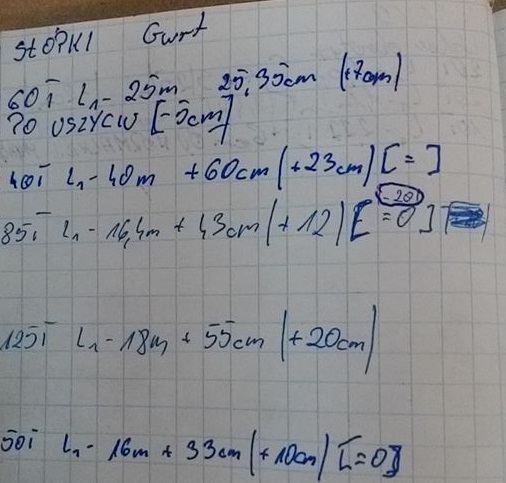 STÓPKI Gurt
60T L1- 25m 25,35cm (+7cm)
PO USZYCIU [-5cm]
40T L1- 40m +60cm (+23cm) [=]
-20
85T L1- 16,4m + 43cm (+12) [=0]
125T L1- 18m + 55cm (+20cm)
50T L1- 16m + 33cm (+10cm) [=0]